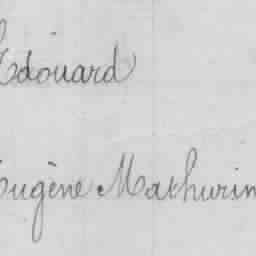 Edouard
Eugène Mathurin